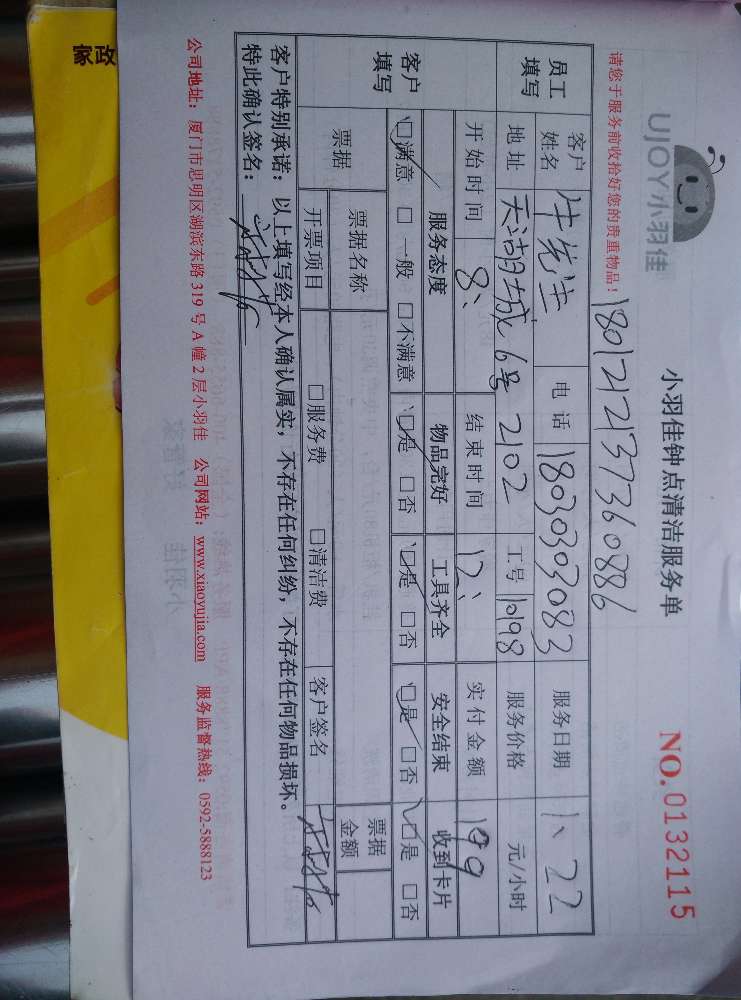 UJOY小羽佳
小羽佳钟点清洁服务单
NO.0132115
请您于服务前收拾好您的贵重物品！
1801212137360886
员工填写
客户姓名 牛先生 电话 18030303083 服务日期 1、22
地址 天湖城6号2102 工号 10198 服务价格 元/小时
开始时间 8: 结束时间 12: 实付金额 199
客户填写
服务态度 物品完好 工具齐全 安全结束 收到卡片
☑满意 □一般 □不满意 ☑是 □否 ☑是 □否 ☑是 □否 ☑是 □否
票据 票据名称 票据金额
开票项目 □服务费 □清洁费 客户签名
客户特别承诺：以上填写经本人确认属实，不存在任何纠纷，不存在任何物品损坏。
特此确认签名：
公司地址：厦门市思明区湖滨东路319号A幢2层小羽佳 公司网站：www.xiaoyujia.com 服务监督热线：0592-5888123
家政